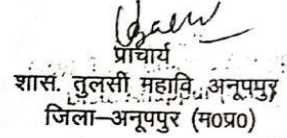 प्राचार्य
शास. तुलसी महावि. अनूपपुर
जिला-अनूपपुर (म०प्र०)